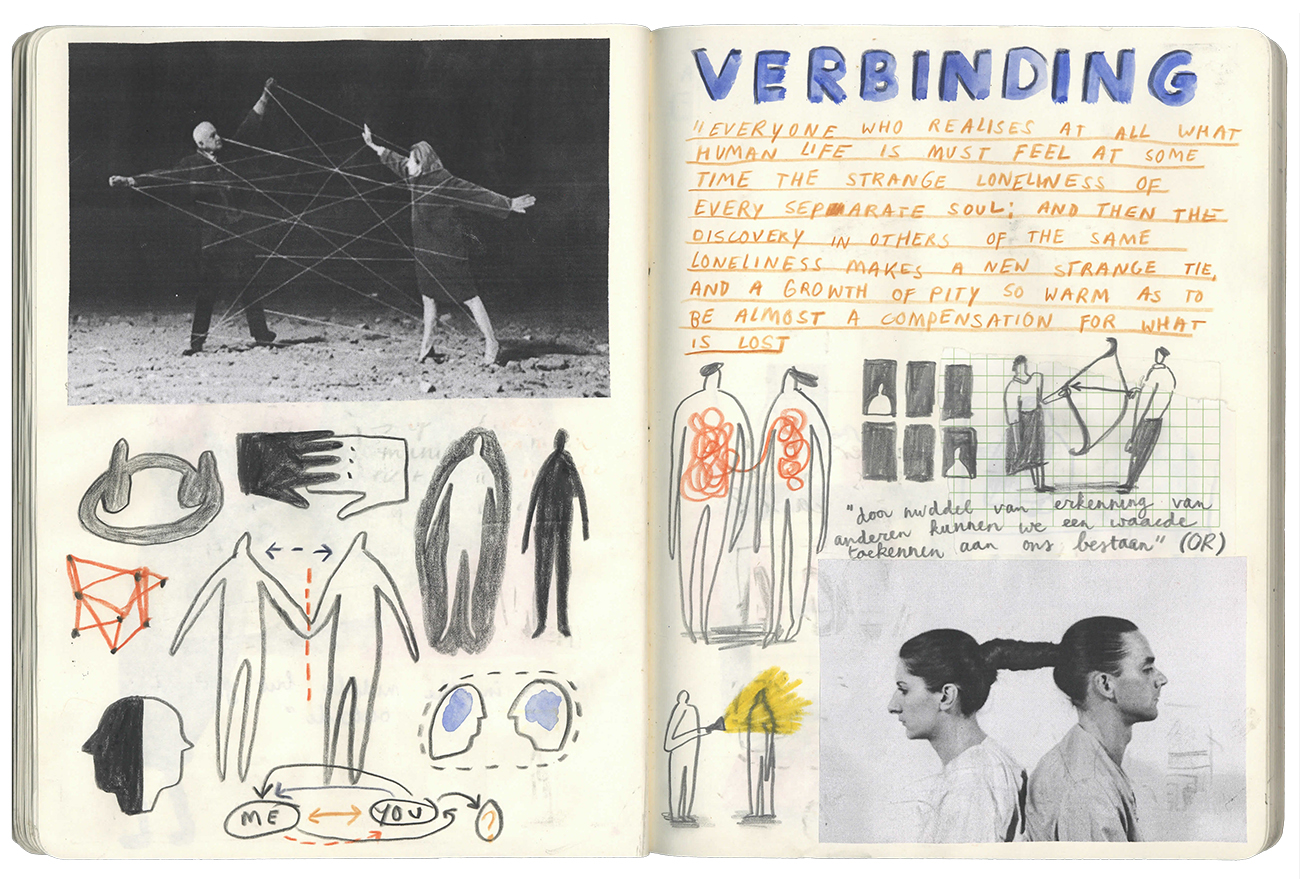 VERBINDING
"EVERYONE WHO REALISES AT ALL WHAT
HUMAN LIFE IS MUST FEEL AT SOME
TIME THE STRANGE LONELINESS OF
EVERY SEPARATE SOUL; AND THEN THE
DISCOVERY IN OTHERS OF THE SAME
LONELINESS MAKES A NEW STRANGE TIE,
AND A GROWTH OF PITY SO WARM AS TO
BE ALMOST A COMPENSATION FOR WHAT
IS LOST
"door middel van erkenning van
anderen kunnen we een waarde
toekennen aan ons bestaan" (OR)
ME YOU ?